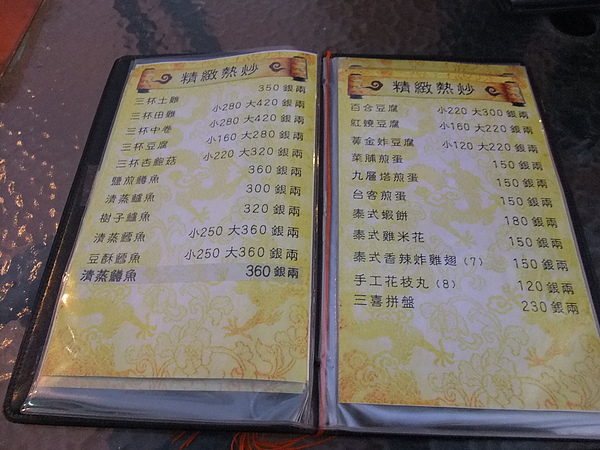 精緻熱炒
三杯土雞 350 銀兩
三杯田雞 小280 大420 銀兩
三杯中卷 小280 大420 銀兩
三杯豆腐 小160 大280 銀兩
三杯杏鮑菇 小220 大320 銀兩
鹽煎鱘魚 360 銀兩
清蒸鱸魚 300 銀兩
樹子鱸魚 320 銀兩
清蒸鱈魚 小250 大360 銀兩
豆酥鱈魚 小250 大360 銀兩
清蒸鱔魚 360 銀兩
精緻熱炒
百合豆腐 小220 大300 銀兩
紅燒豆腐 小160 大220 銀兩
黃金炸豆腐 小120 大220 銀兩
菜脯煎蛋 150 銀兩
九層塔煎蛋 150 銀兩
台客煎蛋 150 銀兩
泰式蝦餅 180 銀兩
泰式雞米花 150 銀兩
泰式香辣炸雞翅 (7) 150 銀兩
手工花枝丸 (8) 120 銀兩
三喜拼盤 230 銀兩